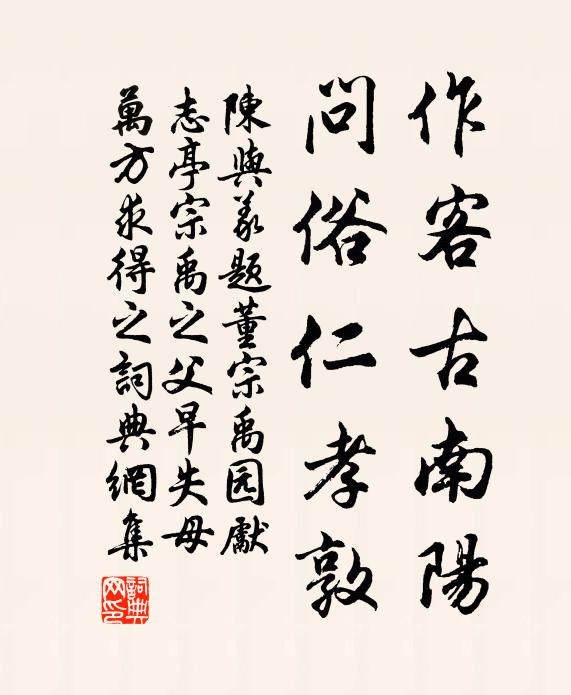 作客古南陽
問俗仁孝敦
陳與義題董宗禹园獻
志亭宗禹之父早失母
萬方求得之詞典網集
詞典网印